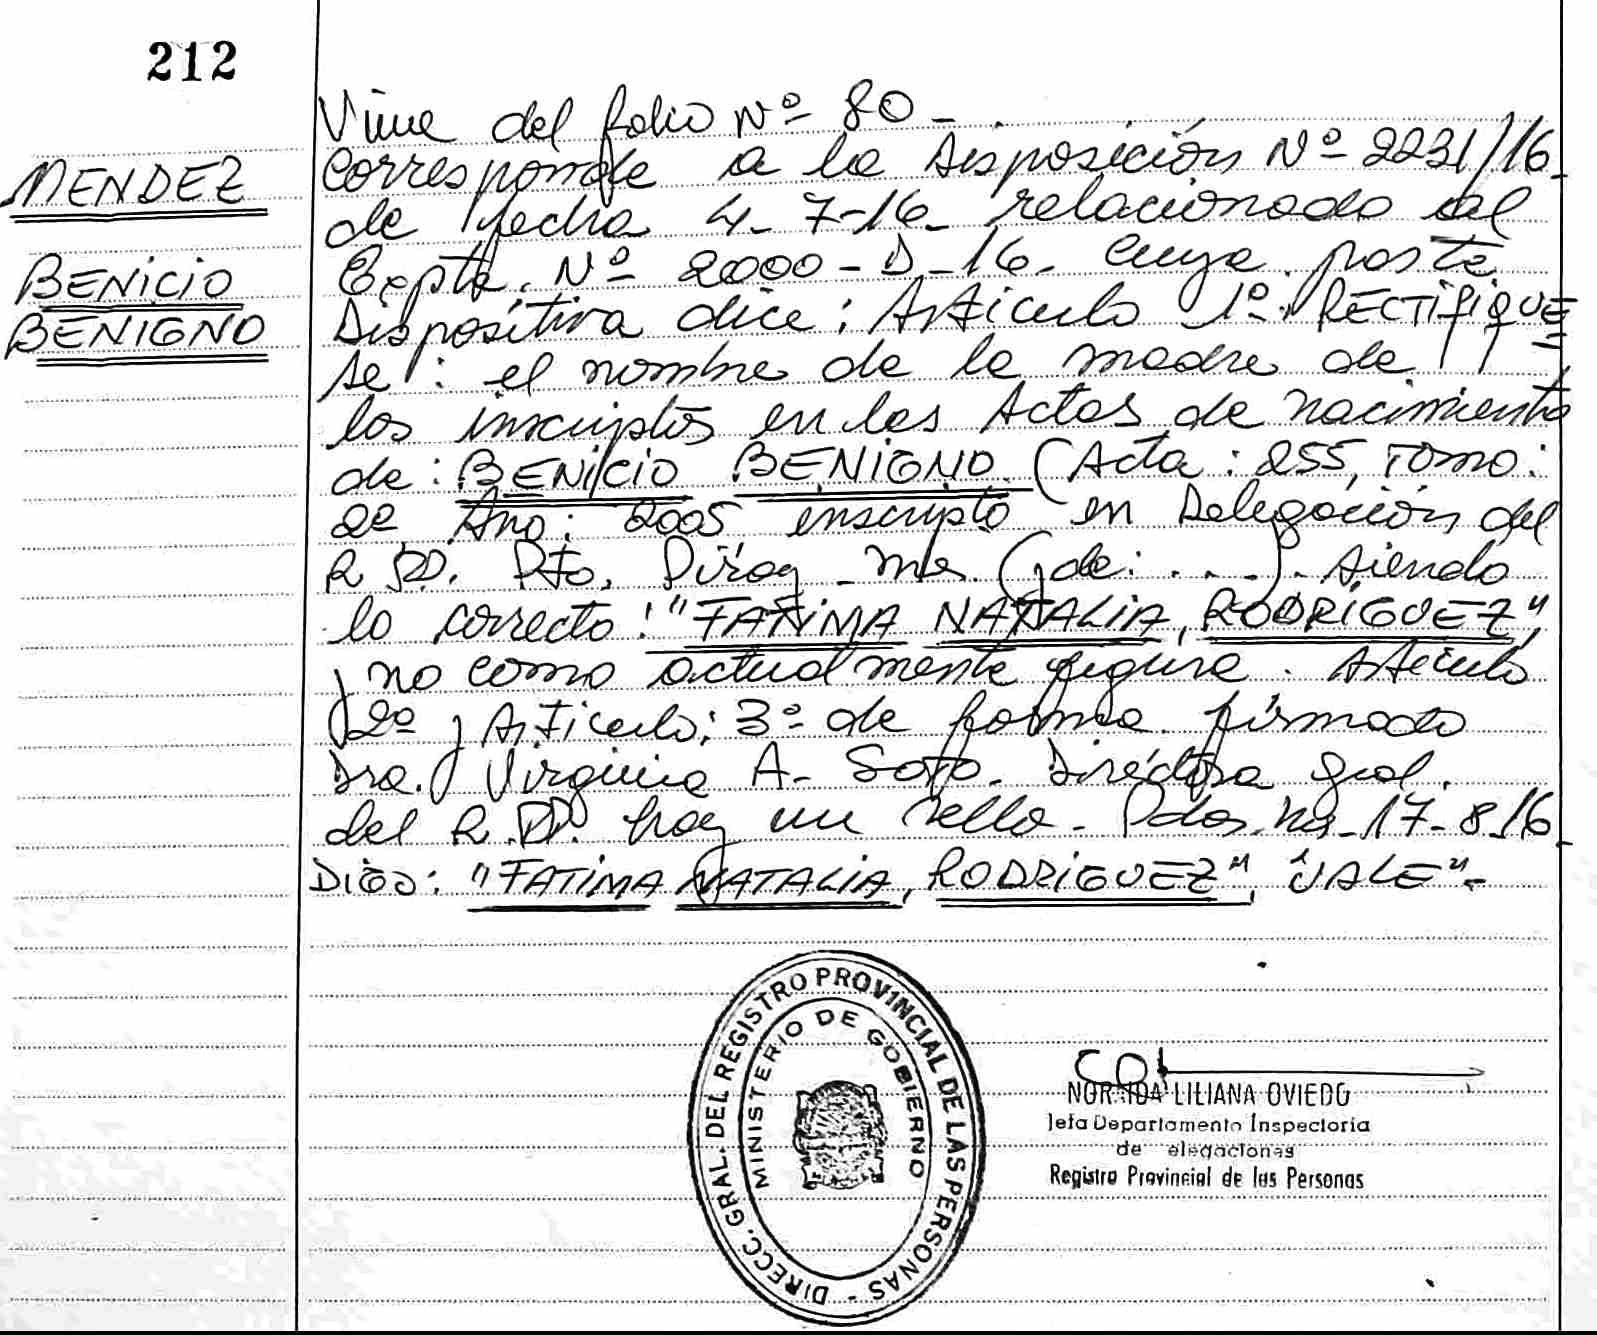 212
MENDEZ
BENICIO
BENIGNO
Viene del folio Nº 80-.
Corresponde a la Disposición Nº 2231/16-
de fecha 4-7-16- relacionado al
Expte. Nº 2000-D-16- cuya parte
Dispositiva dice: Artículo 1º: RECTIFIQUE=
se: el nombre de la madre de
los inscriptos en las Actas de nacimiento
de: BENICIO BENIGNO (Acta: 255, Tomo:
2º Año: 2005 inscripto en Delegación del
R.PP. Pto. Piray - Mnes. (y de: . . .). Siendo
lo correcto: "FATIMA NATALIA, RODRÍGUEZ",
y no como actualmente figura. Artículo
2º y Artículo: 3º de forma. firmado
Dra. Virginia A. Soto. Directora gral.
del R.PP. hay un sello- Pdas. Mns-17-8-16-
DIGO: "FATIMA NATALIA, RODRÍGUEZ", "VALE"-
DIRECC. GRAL. DEL REGISTRO PROVINCIAL DE LAS PERSONAS -
MINISTERIO DE GOBIERNO
LILIANA OVIEDO
Jefa Departamento Inspectoria
de elegaciones
Registro Provincial de las Personas